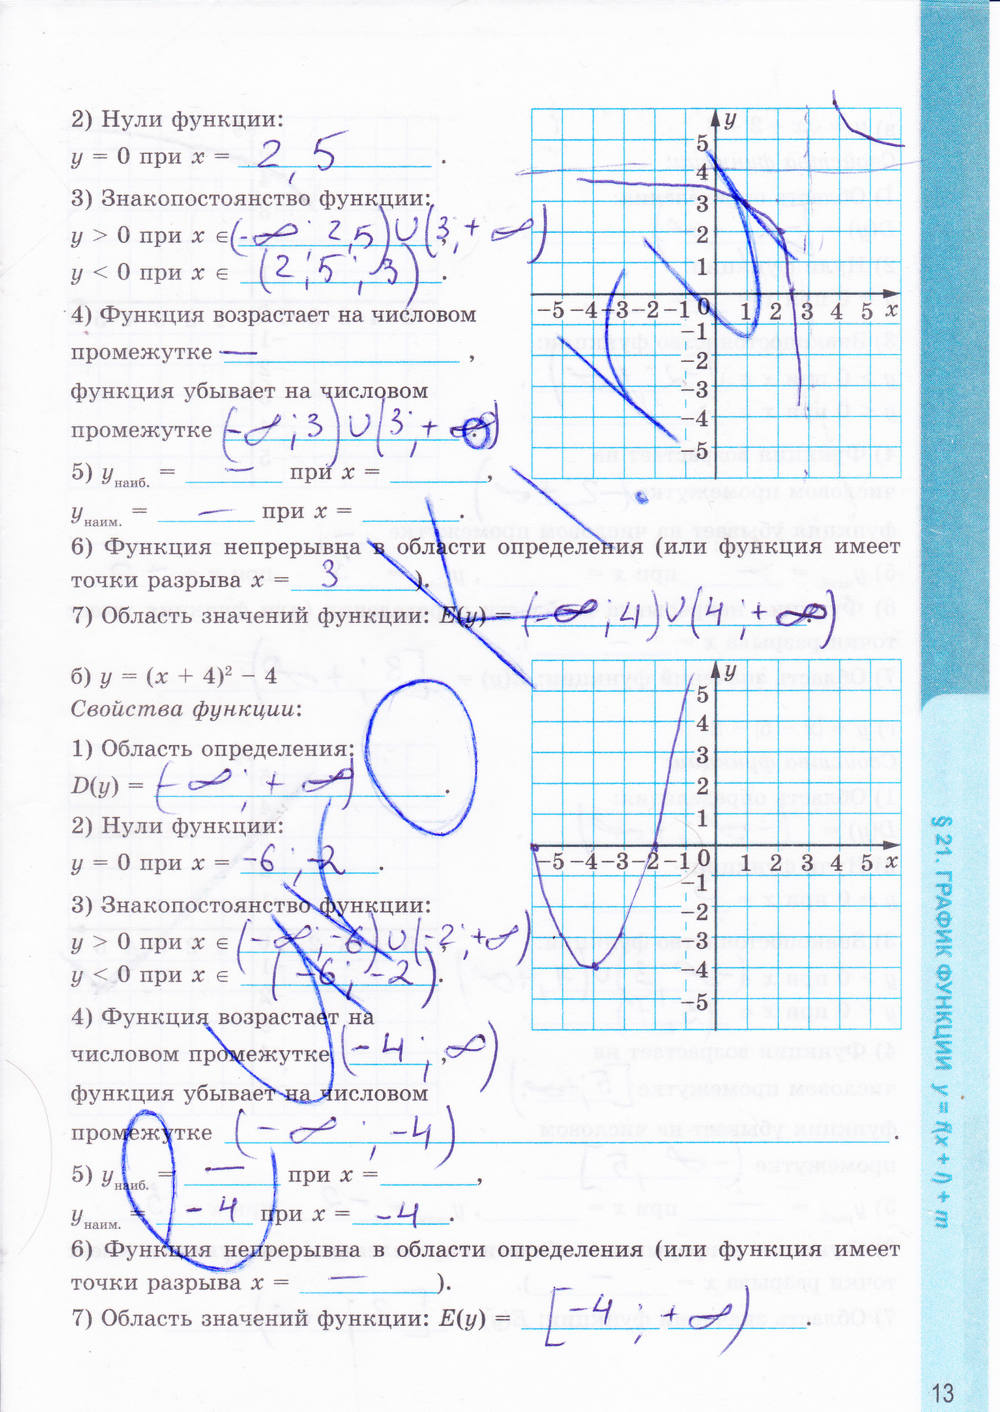 2) Нули функции:
y = 0 при x = 2,5 .
3) Знакопостоянство функции:
y > 0 при x ∈ (-∞; 2,5) ∪ (3; +∞)
y < 0 при x ∈ (2,5; 3) .
4) Функция возрастает на числовом
промежутке — ,
функция убывает на числовом
промежутке (-∞; 3) ∪ (3; +∞)
5) yнаиб. = — при x = ,
yнаим. = — при x = .
6) Функция непрерывна в области определения (или функция имеет
точки разрыва x = 3 ).
7) Область значений функции: E(y) = (-∞; 4) ∪ (4; +∞)
y
5
4
3
2
1
-5 -4 -3 -2 -1 0 1 2 3 4 5 x
-1
-2
-3
-4
-5
б) y = (x + 4)² − 4
Свойства функции:
1) Область определения:
D(y) = (-∞; +∞) .
2) Нули функции:
y = 0 при x = -6; -2 .
3) Знакопостоянство функции:
y > 0 при x ∈ (-∞; -6) ∪ (-2; +∞)
y < 0 при x ∈ (-6; -2) .
4) Функция возрастает на
числовом промежутке (-4; ∞)
функция убывает на числовом
промежутке (-∞; -4) .
5) yнаиб. = — при x = ,
yнаим. = -4 при x = -4 .
6) Функция непрерывна в области определения (или функция имеет
точки разрыва x = — ).
7) Область значений функции: E(y) = [-4; +∞) .
y
5
4
3
2
1
-5 -4 -3 -2 -1 0 1 2 3 4 5 x
-1
-2
-3
-4
-5
§ 21. ГРАФИК ФУНКЦИИ y = f(x + l) + m
13